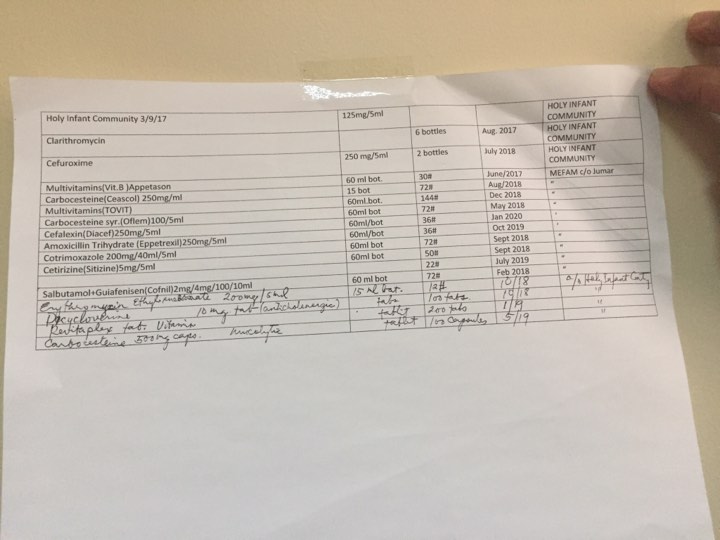 Holy Infant Community 3/9/17 125mg/5ml HOLY INFANT COMMUNITY
Clarithromycin 6 bottles Aug. 2017 HOLY INFANT COMMUNITY
Cefuroxime 250 mg/5ml 2 bottles July 2018 HOLY INFANT COMMUNITY
Multivitamins(Vit.B )Appetason 60 ml bot. 30# June/2017 MEFAM c/o Jumar
Carbocesteine(Ceascol) 250mg/ml 15 bot 72# Aug/2018 "
Multivitamins(TOVIT) 60ml.bot. 144# Dec 2018 "
Carbocesteine syr.(Oflem)100/5ml 60ml bot 72# May 2018 "
Cefalexin(Diacef)250mg/5ml 60ml/bot 36# Jan 2020
Amoxicillin Trihydrate (Eppetrexil)250mg/5ml 60ml/bot 36# Oct 2019 "
Cotrimoxazole 200mg/40ml/5ml 60ml bot 72# Sept 2018 "
Cetirizine(Sitizine)5mg/5ml 60ml bot 50# Sept 2018 "
22# July 2019 "
Salbutamol+Guiafenisen(Cofnil)2mg/4mg/100/10ml 60 ml bot 72# Feb 2018 "
Erythromycin Ethylsuccinate 200mg/5ml 15 ml bot. 12# 10/18 c/o Holy Infant Comty
10 mg tab (anticholenergic) tabs 100 tabs 10/18 "
Revitaplex tab. Vitamin tablet 200 tabs 1/19 "
Carbocisteine 500mg caps. mucolytic tablet 100 Capsules 5/19 "